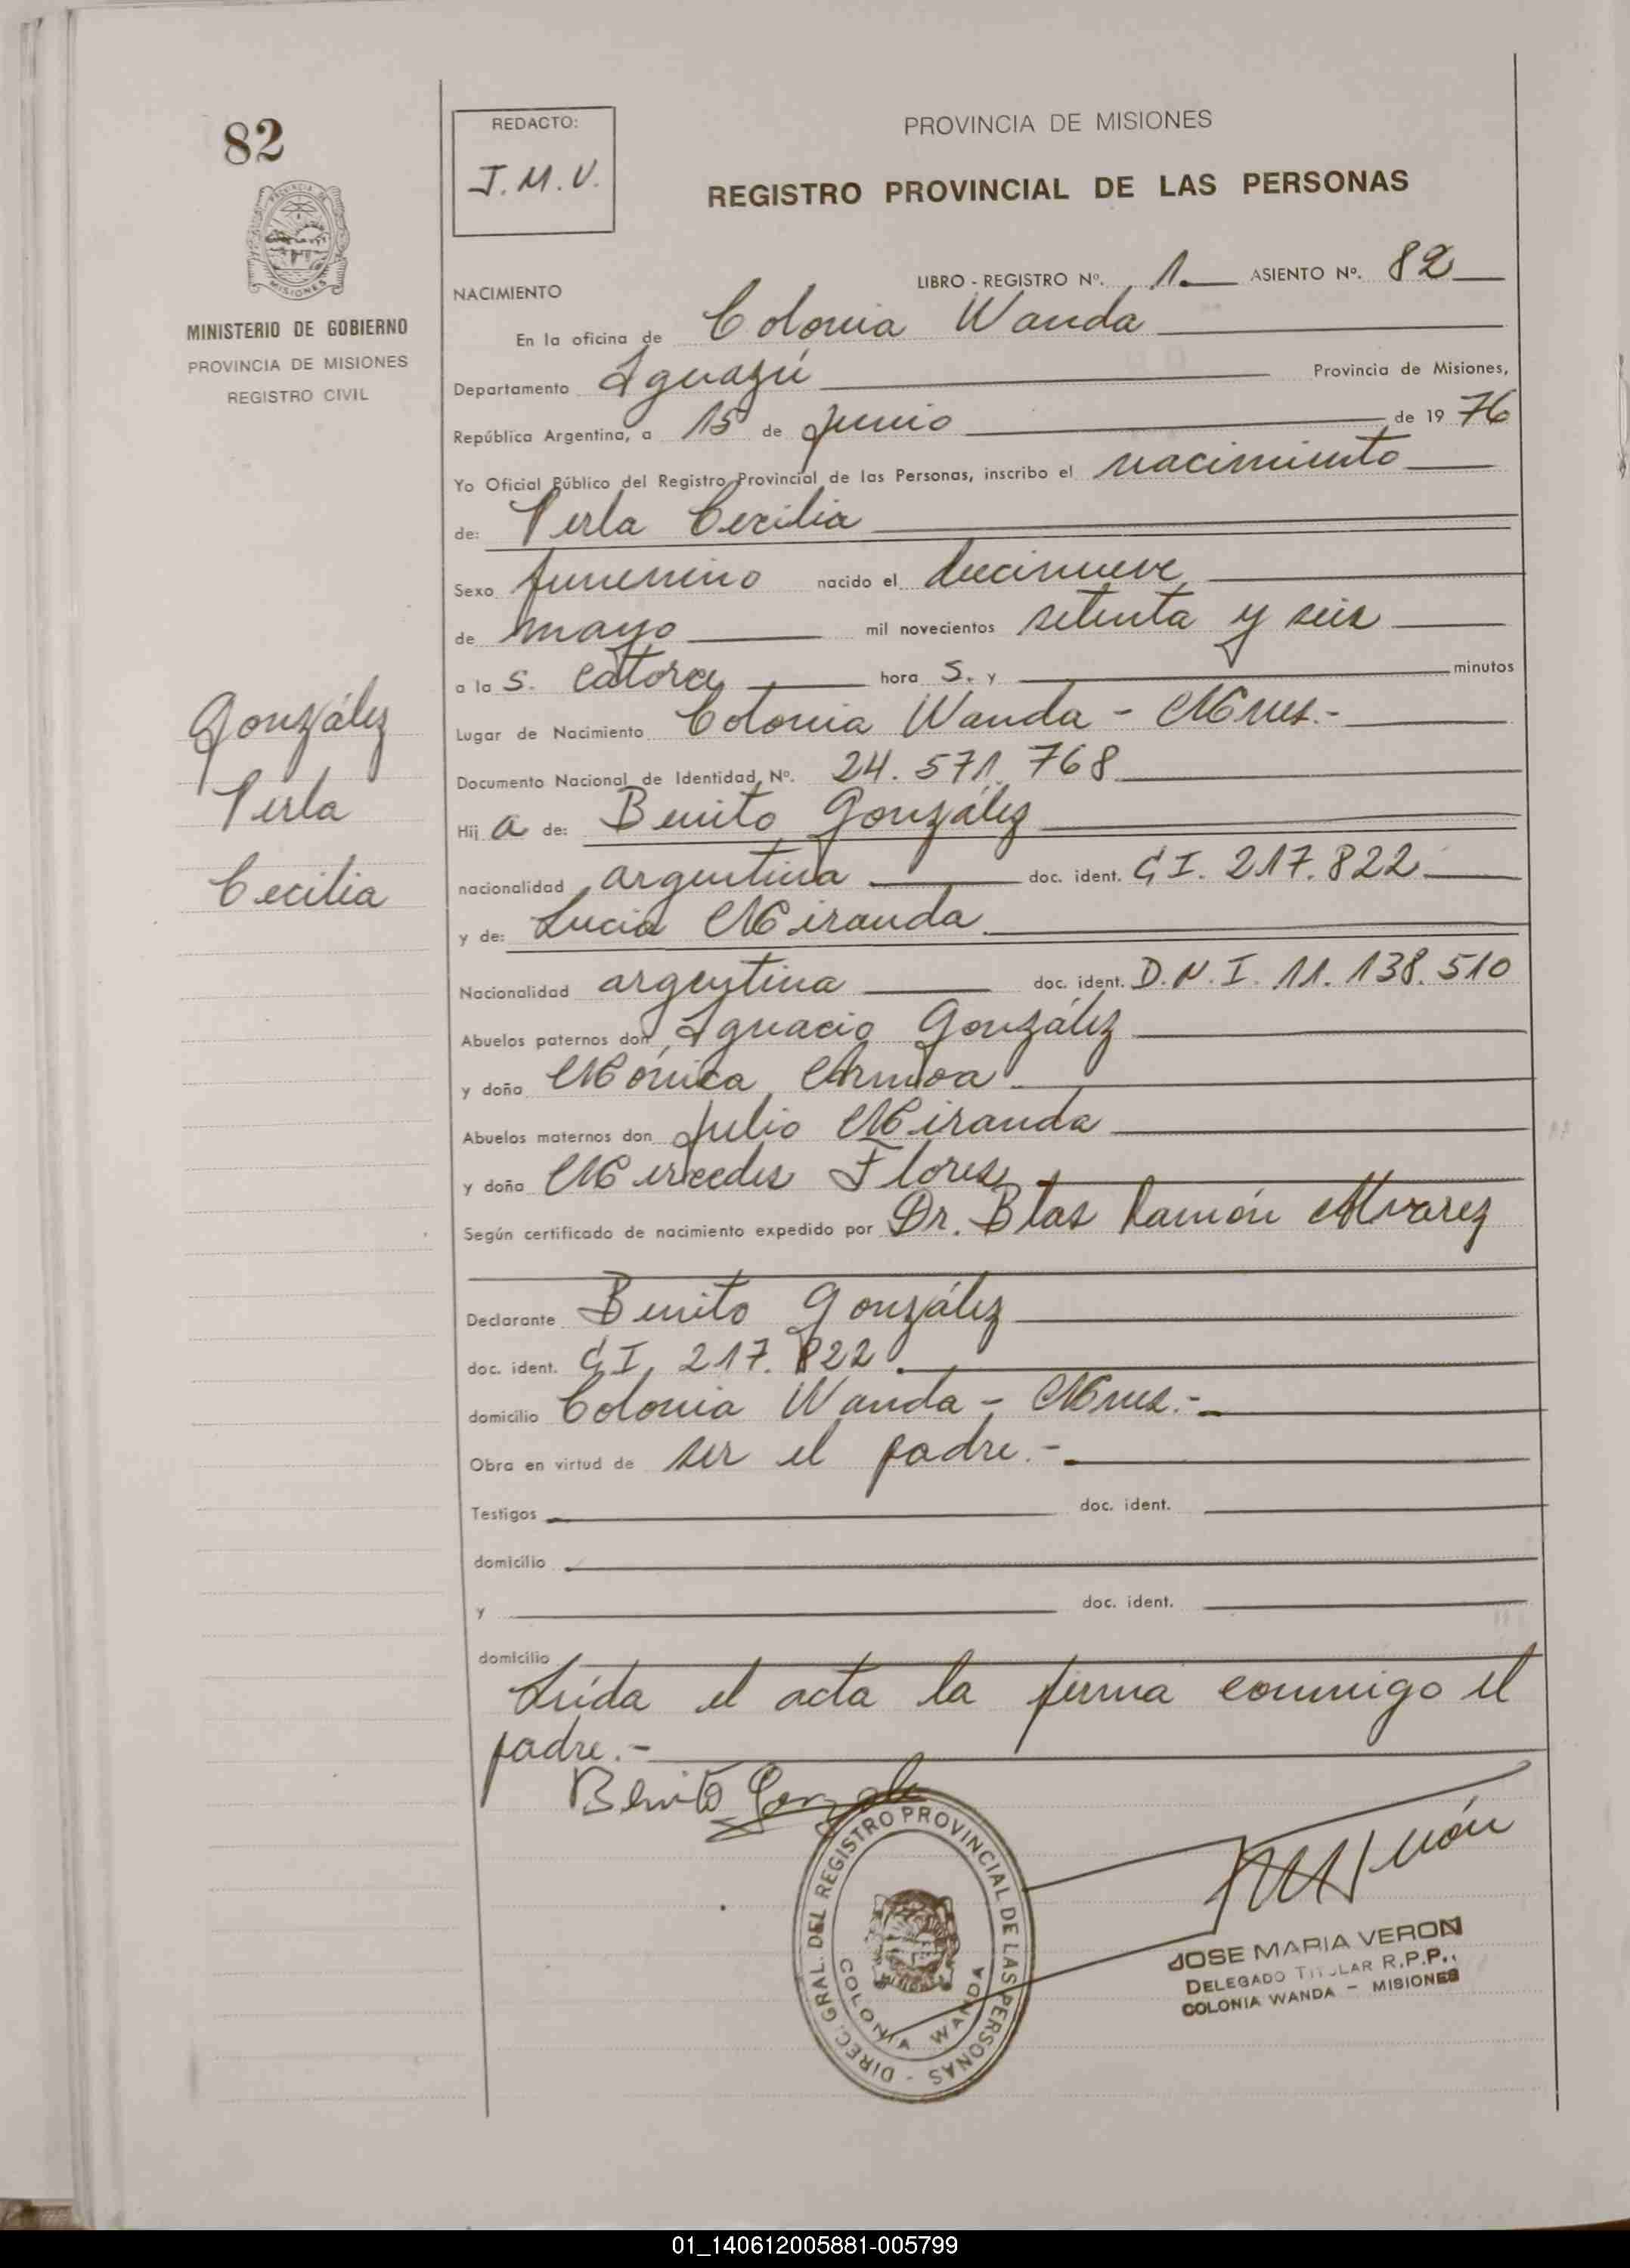 82
REDACTO:
J.M.V.
PROVINCIA DE MISIONES
REGISTRO PROVINCIAL DE LAS PERSONAS
PROVINCIA DE MISIONES
MINISTERIO DE GOBIERNO
PROVINCIA DE MISIONES
REGISTRO CIVIL
LIBRO - REGISTRO Nº. 1. ASIENTO Nº. 82
NACIMIENTO
En la oficina de Colonia Wanda
Departamento Iguazú Provincia de Misiones,
República Argentina, a 15 de junio de 19 76
Yo Oficial Público del Registro Provincial de las Personas, inscribo el nacimiento
de: Perla Cecilia
Sexo femenino nacido el diecinueve
de mayo mil novecientos setenta y seis
a la s. catorce hora s. y minutos
Lugar de Nacimiento Colonia Wanda - Mnes.-
Documento Nacional de Identidad, Nº. 24.571.768
Hij a de: Benito González
nacionalidad argentina doc. ident. C.I. 217.822
y de: Lucia Miranda
Nacionalidad argentina doc. ident. D.N.I. 11.138.510
Abuelos paternos don Ignacio González
y doña Mónica Armoa
Abuelos maternos don Julio Miranda
y doña Mercedes Flores
Según certificado de nacimiento expedido por Dr. Blas Ramón Alvarez
Declarante Benito González
doc. ident. C.I. 217.822
domicilio Colonia Wanda - Mnes.-
Obra en virtud de ser el padre.-
Testigos doc. ident.
domicilio
y doc. ident.
domicilio
Leida el acta la firma conmigo el
padre.-
González
Perla
Cecilia
Benito Gonzale
DIREC. GRAL. DEL REGISTRO PROVINCIAL DE LAS PERSONAS -
COLONIA WANDA
JOSE MARIA VERON
DELEGADO TITULAR R.P.P.,
COLONIA WANDA - MISIONES
01_140612005881-005799